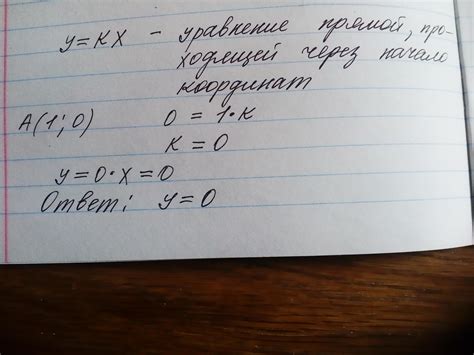 y=KX - уравнение прямой, про-
ходящей через начало
координат
A(1;0) 0=1·K
K=0
y=0·X=0
Ответ: y=0